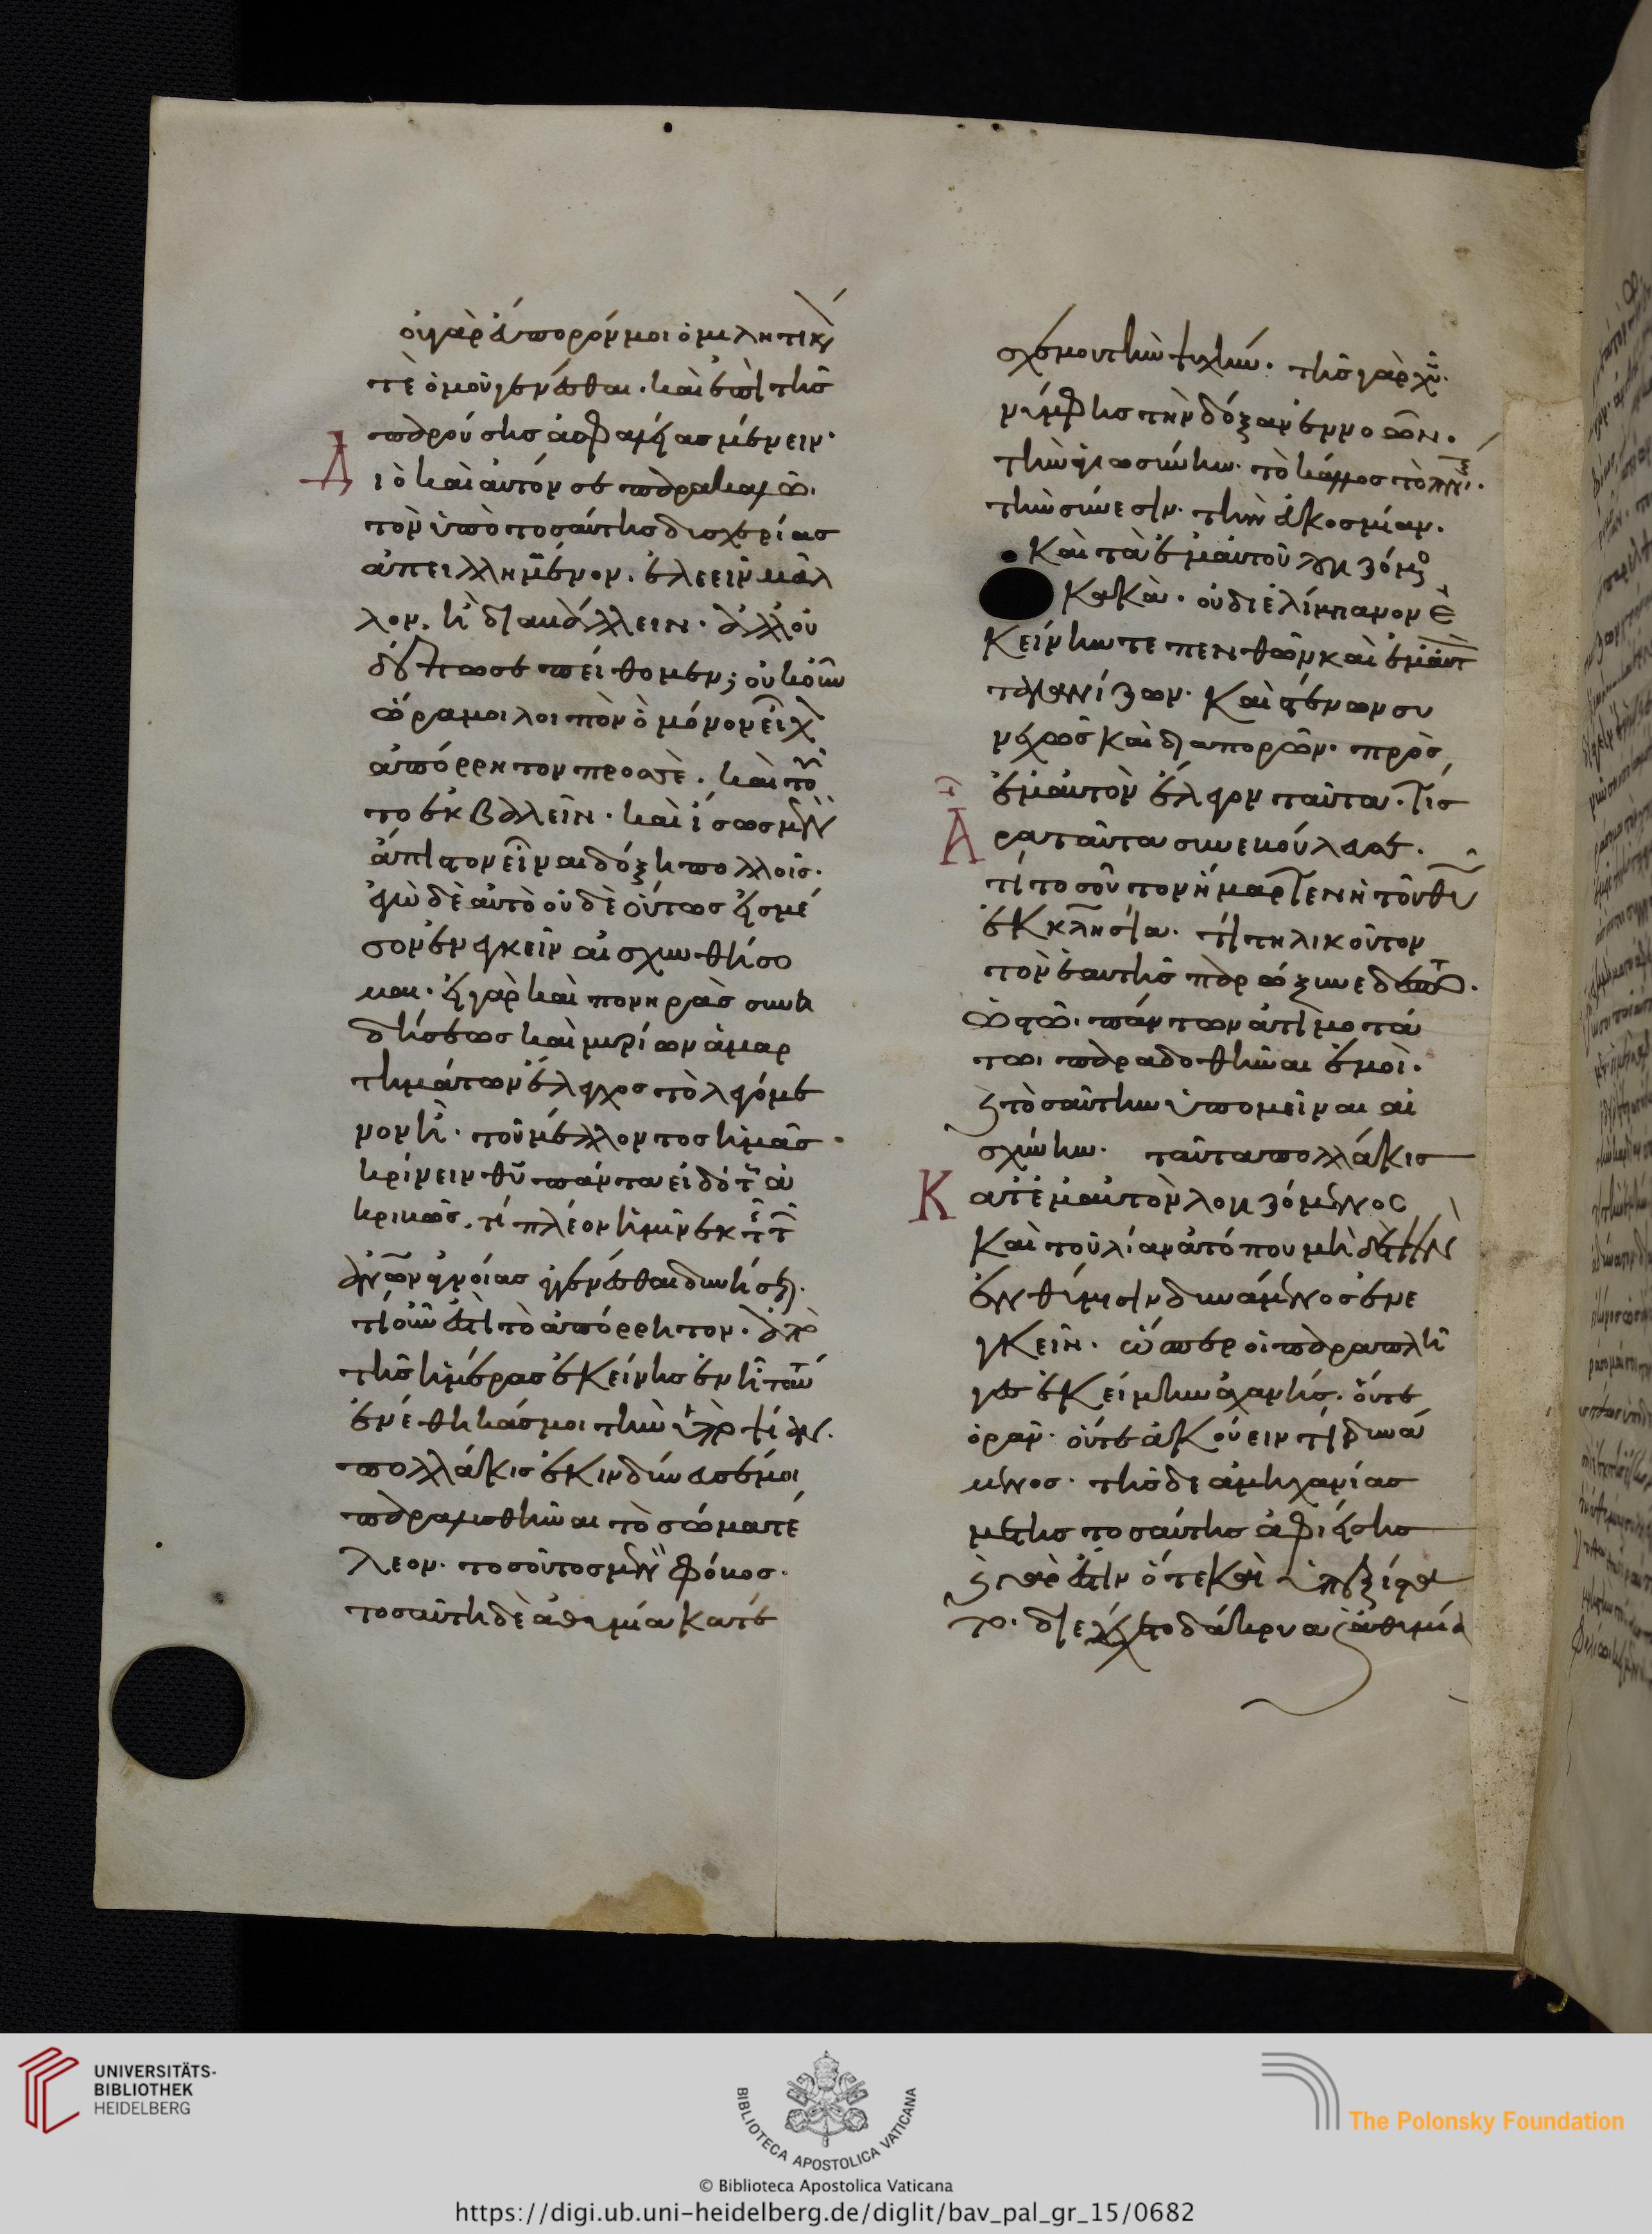 οὐ γὰρ ἄπορόν μοι ὁμιλητικόν
τὲ ὁμοῦ γενέσθαι. καὶ ἐπὶ τῆς
παρούσης ἀσφαλείας μένειν.
Διὸ καὶ αὐτόν σε παρακαλῶ.
τὸν ὑπὸ τοσαύτης δυσχερίας
ἀπειλλημμένον. ἐλεεῖν μᾶλ
λον. ἢ διαβάλλειν. ἀλλ' οὐ
δέπω σε πείθομεν; οὐκοῦν
ὥρα μοι λοιπὸν ὃ μόνον εἶχον
ἀπόρρητον πρὸς σέ. καὶ τοῦ
το ἐκβαλεῖν. καὶ ἴσως μὲν
ἄπιστον εἶναι δόξη πολλοῖς.
ἐγὼ δὲ αὐτὸ οὐδὲ οὕτως εἰς μέ
σον ἐνεγκεῖν αἰσχυνθήσο
μαι. εἰ γὰρ καὶ πονηρᾶς συνει
δήσεως καὶ μυρίων ἁμαρ
τημάτων ἔλεγχος τὸ λεγόμε
νον ἦ. τοῦ μέλλοντος ἡμᾶς
κρίνειν θῦ πάντα εἰδότος ἀ
κριβῶς. τί πλέον ἡμῖν ἐκ τῆς τῶν
ἀνων ἀγνοίας ἐγγενέσθαι δυνήσεται.
τί οὖν ἐστὶ τὸ ἀπόρρητον. ἀπὸ
τῆς ἡμέρας ἐκείνης ἐν ἧ ταύτην
ἐνέθηκάς μοι τὴν ὑποψίαν.
πολλάκις ἐκινδύνευσέ μοι
παραλυθῆναι τὸ σῶμα τέ
λεον. τοσοῦτος μὲν φόβος.
τοσαύτη δὲ ἀθυμία κατέ
σχέ μου τὴν ψυχήν. τῆς γὰρ χῦ.
νύμφης τὴν δόξαν ἐννοῶν.
τὴν ἁγιωσύνην. τὸ κάλλος τὸ πνικόν.
τὴν σύνεσιν. τὴν εὐκοσμίαν.
Καὶ τὰ ἐμαυτοῦ λογιζόμενος
κακὰ. οὐ διελίμπανον ἐ
κείνην τε πενθῶν καὶ ἐμαυτὸν
ταλανίζων. καὶ στένων συ
νεχῶς καὶ διαπορῶν. πρὸς
ἐμαυτὸν ἔλεγον ταῦτα. τίς
Ἄρα ταῦτα συνεβούλευσε.
τί τοσοῦτον ἥμαρτεν ἡ τοῦ θῦ
ἐκκλησία. τί τηλικοῦτον
τὸν ἑαυτῆς παρώξυνε δεσπότην.
ὡς τῶ. πάντων ἀτιμοτά
τω. παραδοθῆναι ἐμοὶ.
καὶ τοσαύτην ὑπομεῖναι αἰ
σχύνην. ταῦτα πολλάκις
Κατ' ἐμαυτὸν λογιζόμενος
καὶ τοῦ λίαν ἀτόπου μὴ δὲ τὴν
ἐνθύμησιν δυνάμενος ἐνε
γκεῖν. ὥσπερ οἱ παραπλῆ
γες ἐκείμην ἀχανής. οὔτε
ὁρᾶν. οὔτε ἀκούειν τί δυνά
μενος. τῆς δὲ ἀμηχανίας
με τῆς τοσαύτης ἀφιείσης
καὶ γὰρ ἔστιν ὅτε καὶ ὑπεξίστα
το. διεδέχετο δάκρυα καὶ ἀθυμία
UNIVERSITÄTS-
BIBLIOTHEK
HEIDELBERG
BIBLIOTECA APOSTOLICA VATICANA
The Polonsky Foundation
© Biblioteca Apostolica Vaticana
https://digi.ub.uni-heidelberg.de/diglit/bav_pal_gr_15/0682